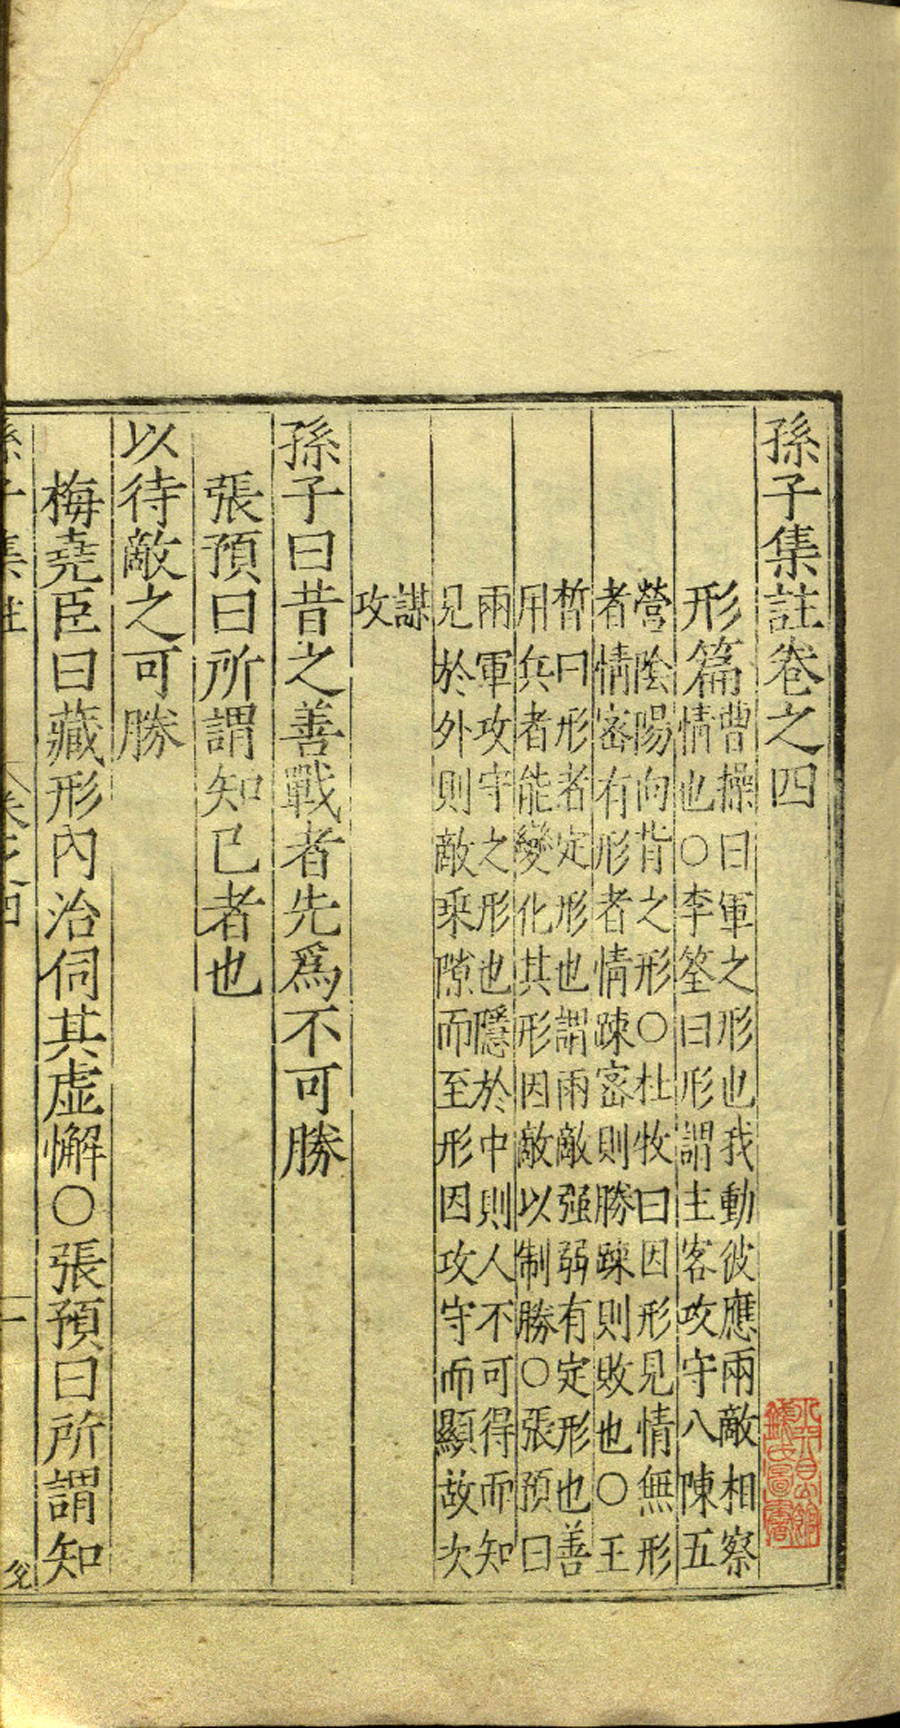 孫子集註卷之四
形篇
曹操曰軍之形也我動彼應兩敵相察
情也○李筌曰形謂主客攻守八陳五
營陰陽向背之形○杜牧曰因形見情無形
者情密有形者情踈密則勝踈則敗也○王
晳曰形者定形也謂兩敵强弱有定形也善
用兵者能變化其形因敵以制勝○張預曰
兩軍攻守之形也隱於中則人不可得而知
見於外則敵乗隙而至形因攻守而顯故次
謀
攻
孫子曰昔之善戰者先爲不可勝
張預曰所謂知已者也
以待敵之可勝
梅堯臣曰藏形内治伺其虚懈○張預曰所謂知
孫子集註 卷之四 一